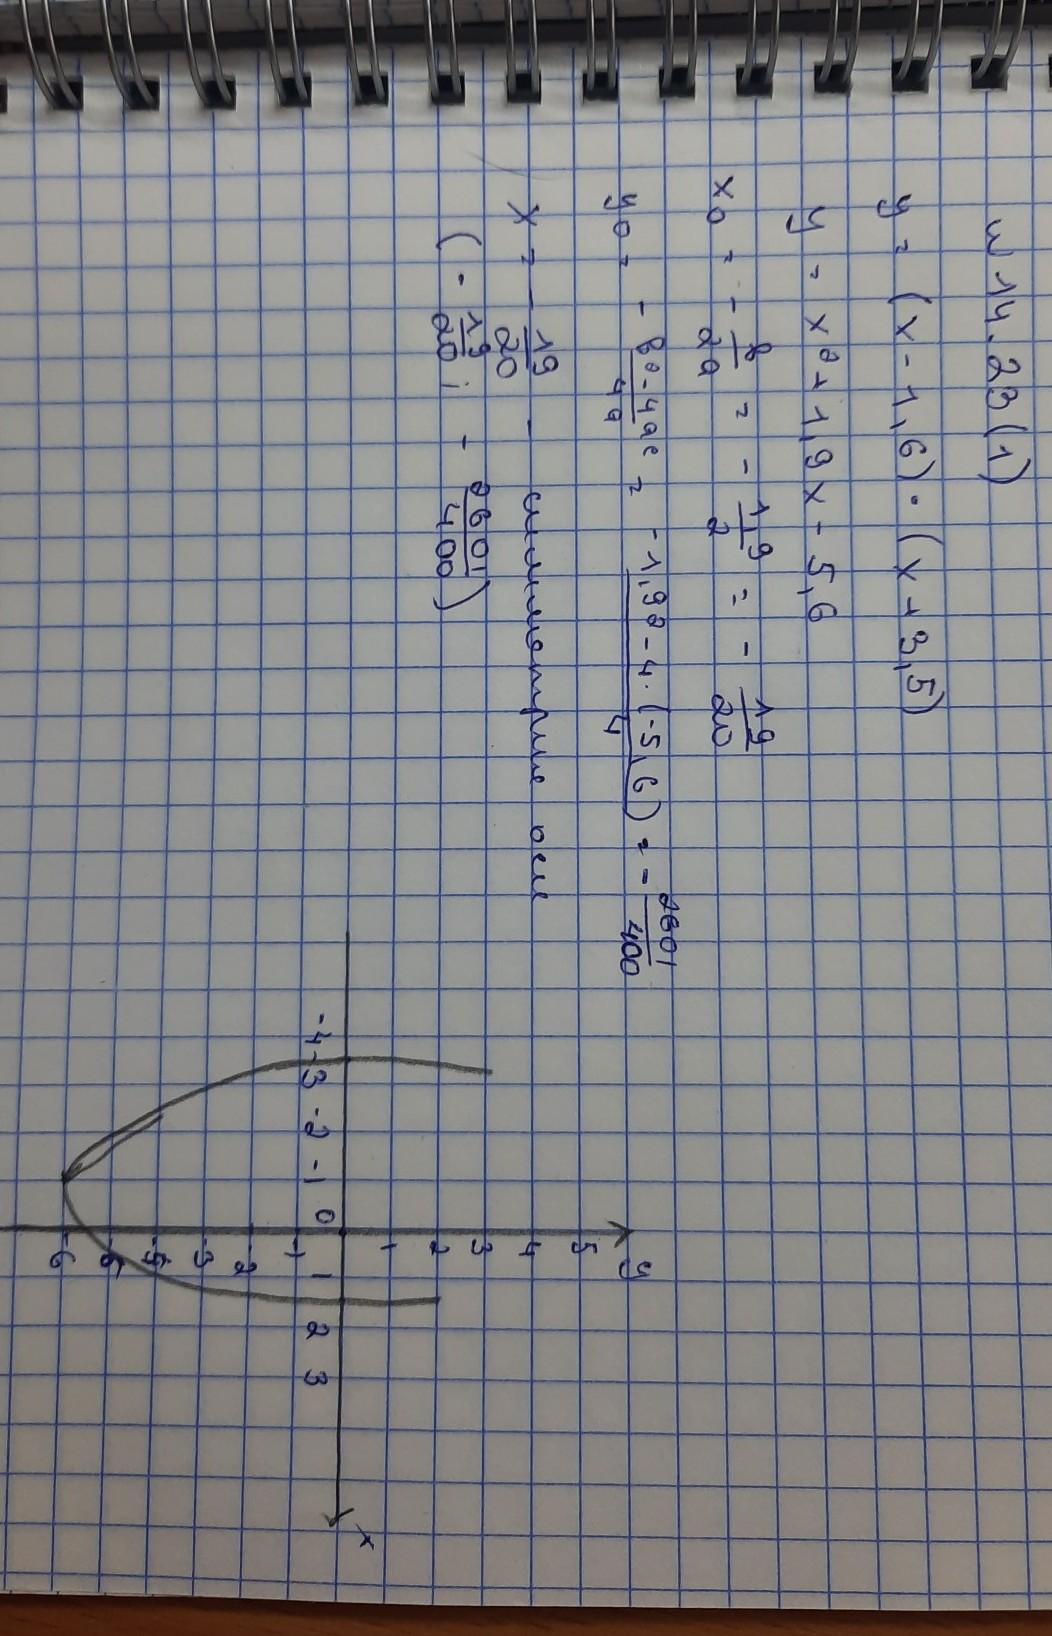 № 14.23(1)
y = (x-1,6)·(x+3,5)
y = x²+1,9x-5,6
x₀ = -b/2a = -1,9/2 = -19/20
y₀ = -b²-4ac/4a = -1,9²-4·(-5,6)/4 = -2601/400
x = -19/20 - симметрие оси
(-19/20; -2601/400)
y
5
4
3
2
1
-4 -3 -2 -1 0 1 2 3 x
-1
-2
-3
-4
-5
-6